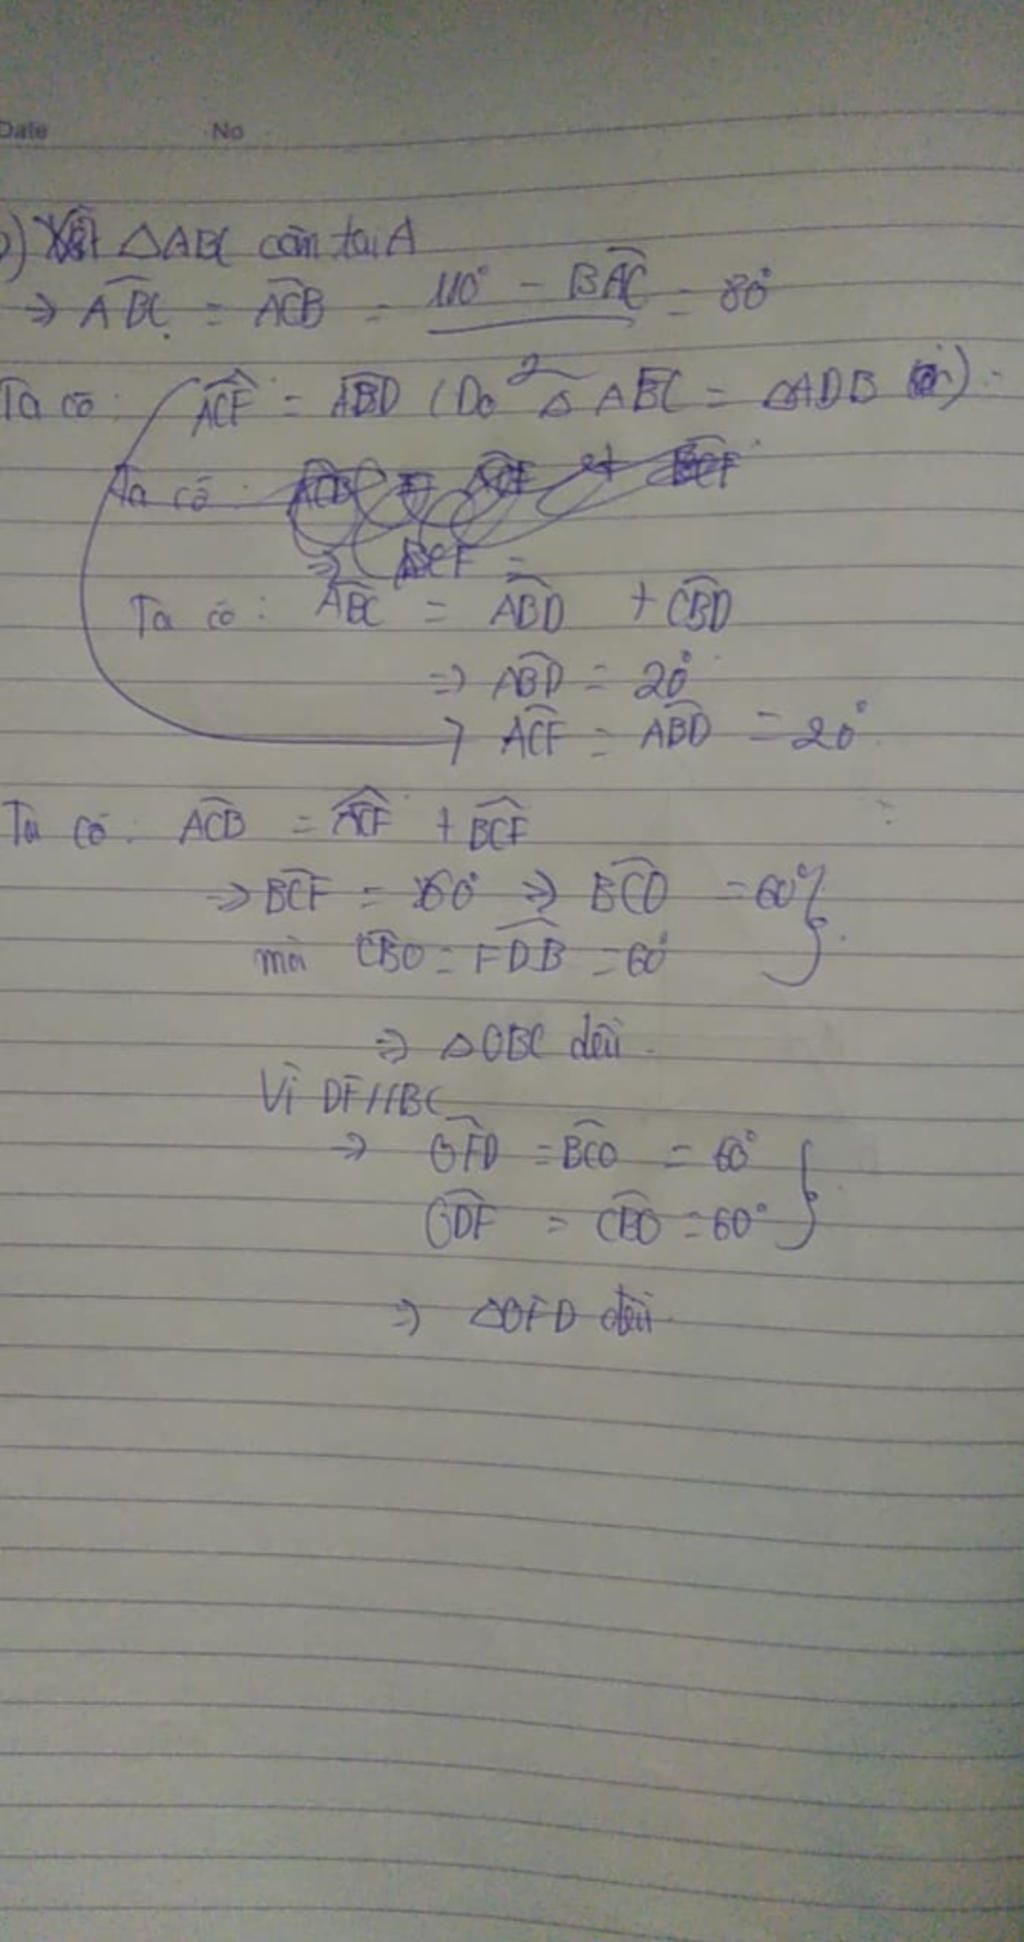 Date No
b) Xét △ABC cân tại A
⇒ ABC = ACB = 180° - BAC = 80°
2
Ta có: ACF = ABD (Do △AFC = △ADB ).
Ta có: ACB = ACF + BCF
⇒ BCF =
Ta có: ABC = ABD + CBD
⇒ ABD = 20°
→ ACF = ABD = 20°
Ta có: ACB = ACF + BCF
⇒ BCF = 60° ⇒ BCO = 60° }
mà CBO = FDB = 60°
⇒ △OBC đều.
Vì DF//BC
⇒ OFD = BCO = 60° }
ODF = CBO = 60°
⇒ △OFD đều.